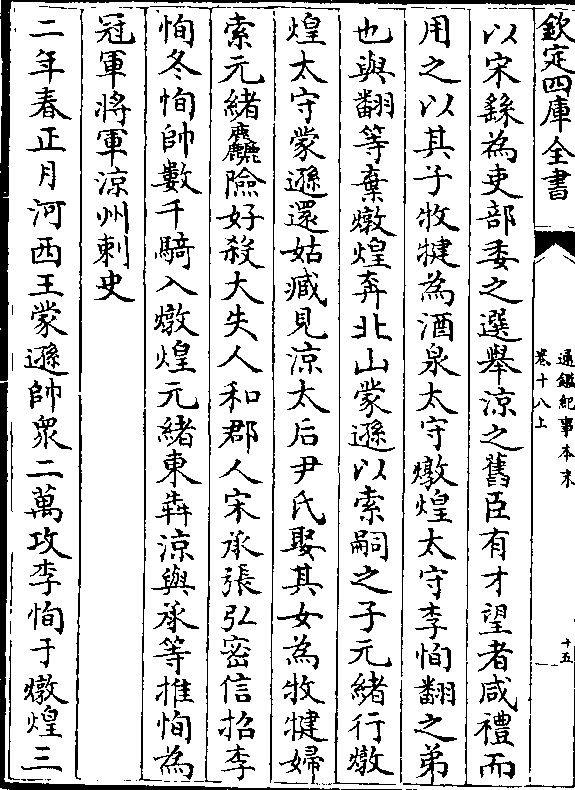 欽定四庫全書
通鑑紀事本末
卷十八上
十五
以宋繇為吏部委之選舉涼之舊臣有才望者咸禮而
用之以其子牧犍為酒泉太守燉煌太守李恂翻之弟
也與翻等棄燉煌奔北山蒙遜以索嗣之子元緒行燉
煌太守蒙遜還姑臧見涼太后尹氏娶其女為牧犍婦
索元緒麤險好殺大失人和郡人宋承張弘密信招李
恂冬恂帥數千騎入燉煌元緒東犇涼與承等推恂為
冠軍將軍涼州刺史
二年春正月河西王蒙遜帥衆二萬攻李恂于燉煌三